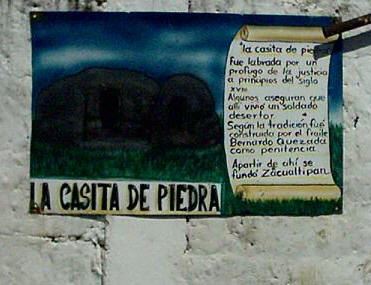 "la casita de piedra
Fue labrada por un
profugo de la justicia
a principios del siglo
XVIII
Algunos aseguran que
alli vivio un soldado
desertor
Según la tradición fué
construida por el fraile
Bernardo Quezada
como penitencia
Apartir de ahí se
fundó Zacualtipan
LA CASITA DE PIEDRA